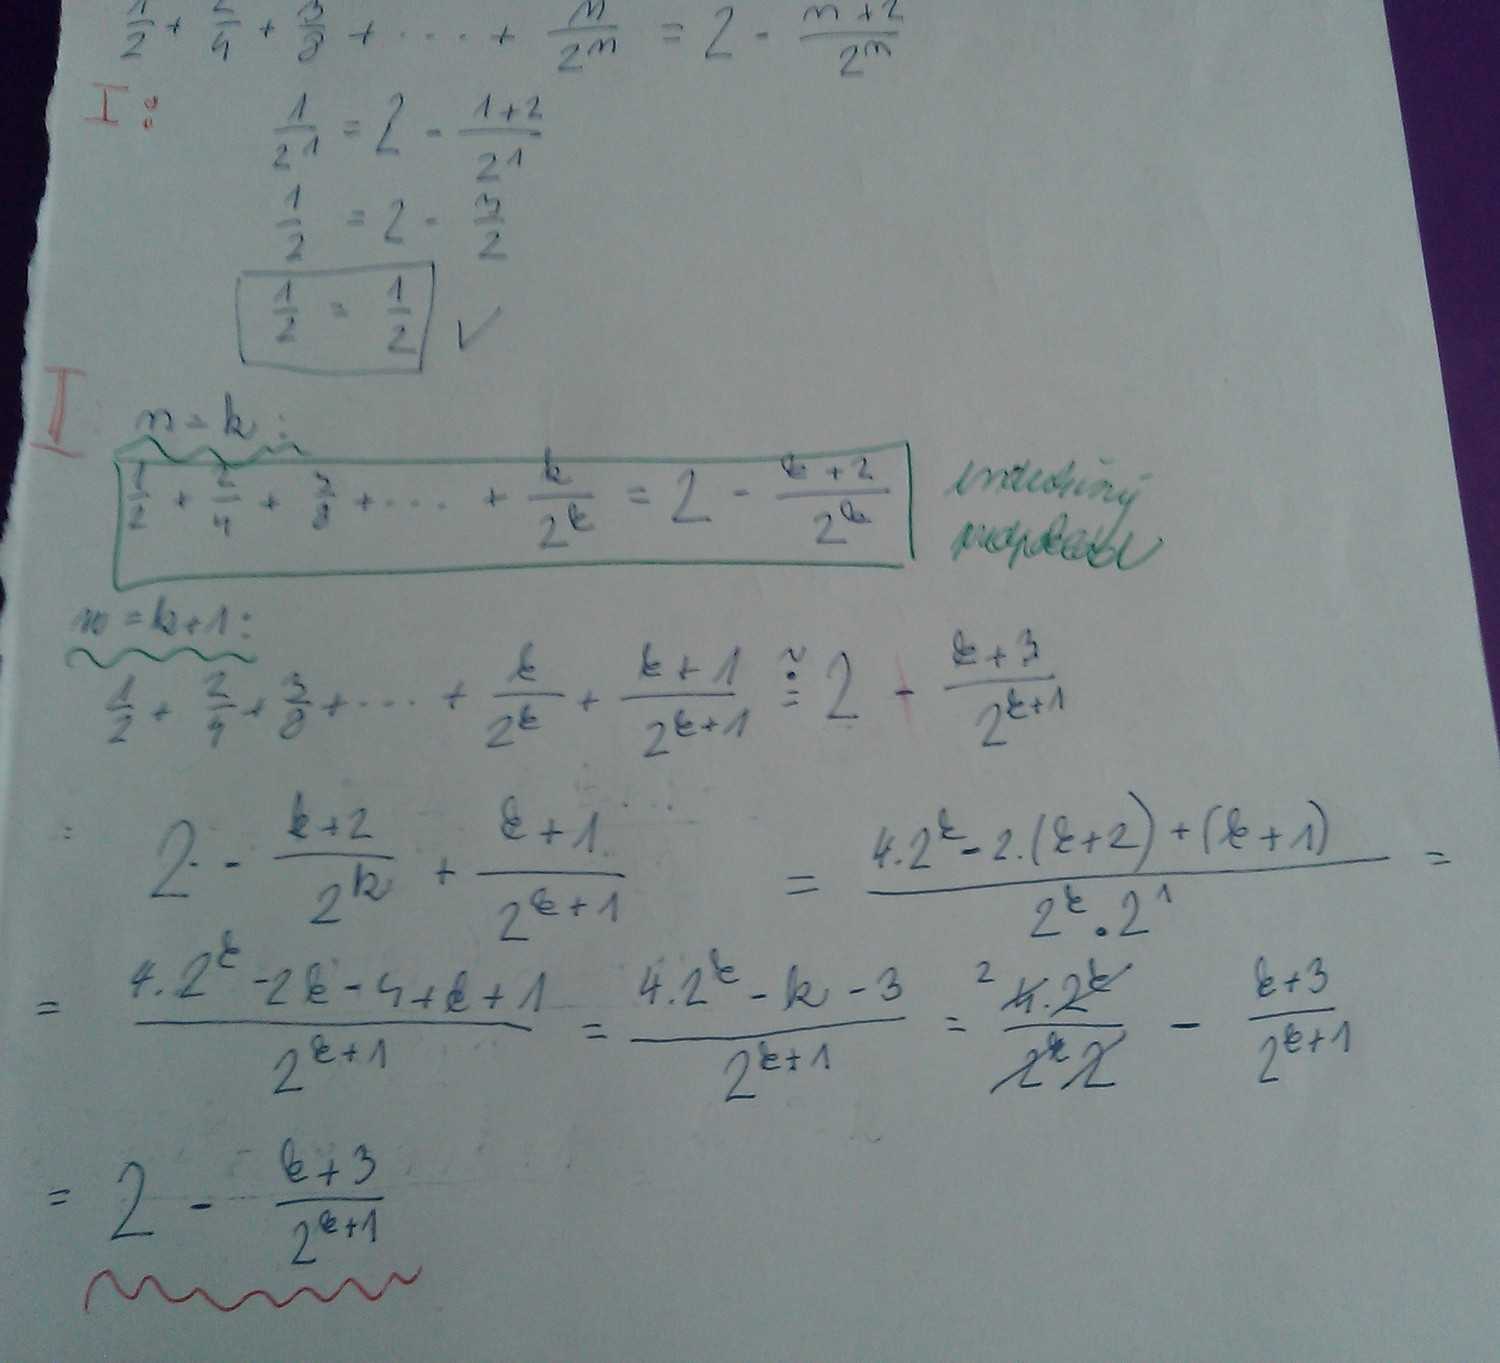 1/2 + 2/4 + 3/8 + .... + n/2^n = 2 - n+2/2^n
I:
1/2^1 = 2 - 1+2/2^1
1/2 = 2 - 3/2
1/2 = 1/2 ✓
I n=k:
1/2 + 2/4 + 3/8 + .... + k/2^k = 2 - k+2/2^k indukčný
predpoklad
n=k+1:
1/2 + 2/4 + 3/8 + .... + k/2^k + k+1/2^k+1 ≟ 2 - k+3/2^k+1
2 - k+2/2^k + k+1/2^k+1 = 4.2^k-2.(k+2)+(k+1)/2^k.2^1 =
= 4.2^k-2k-4+k+1/2^k+1 = 4.2^k-k-3/2^k+1 = 2 4.2^k/2^k 2 - k+3/2^k+1
= 2 - k+3/2^k+1